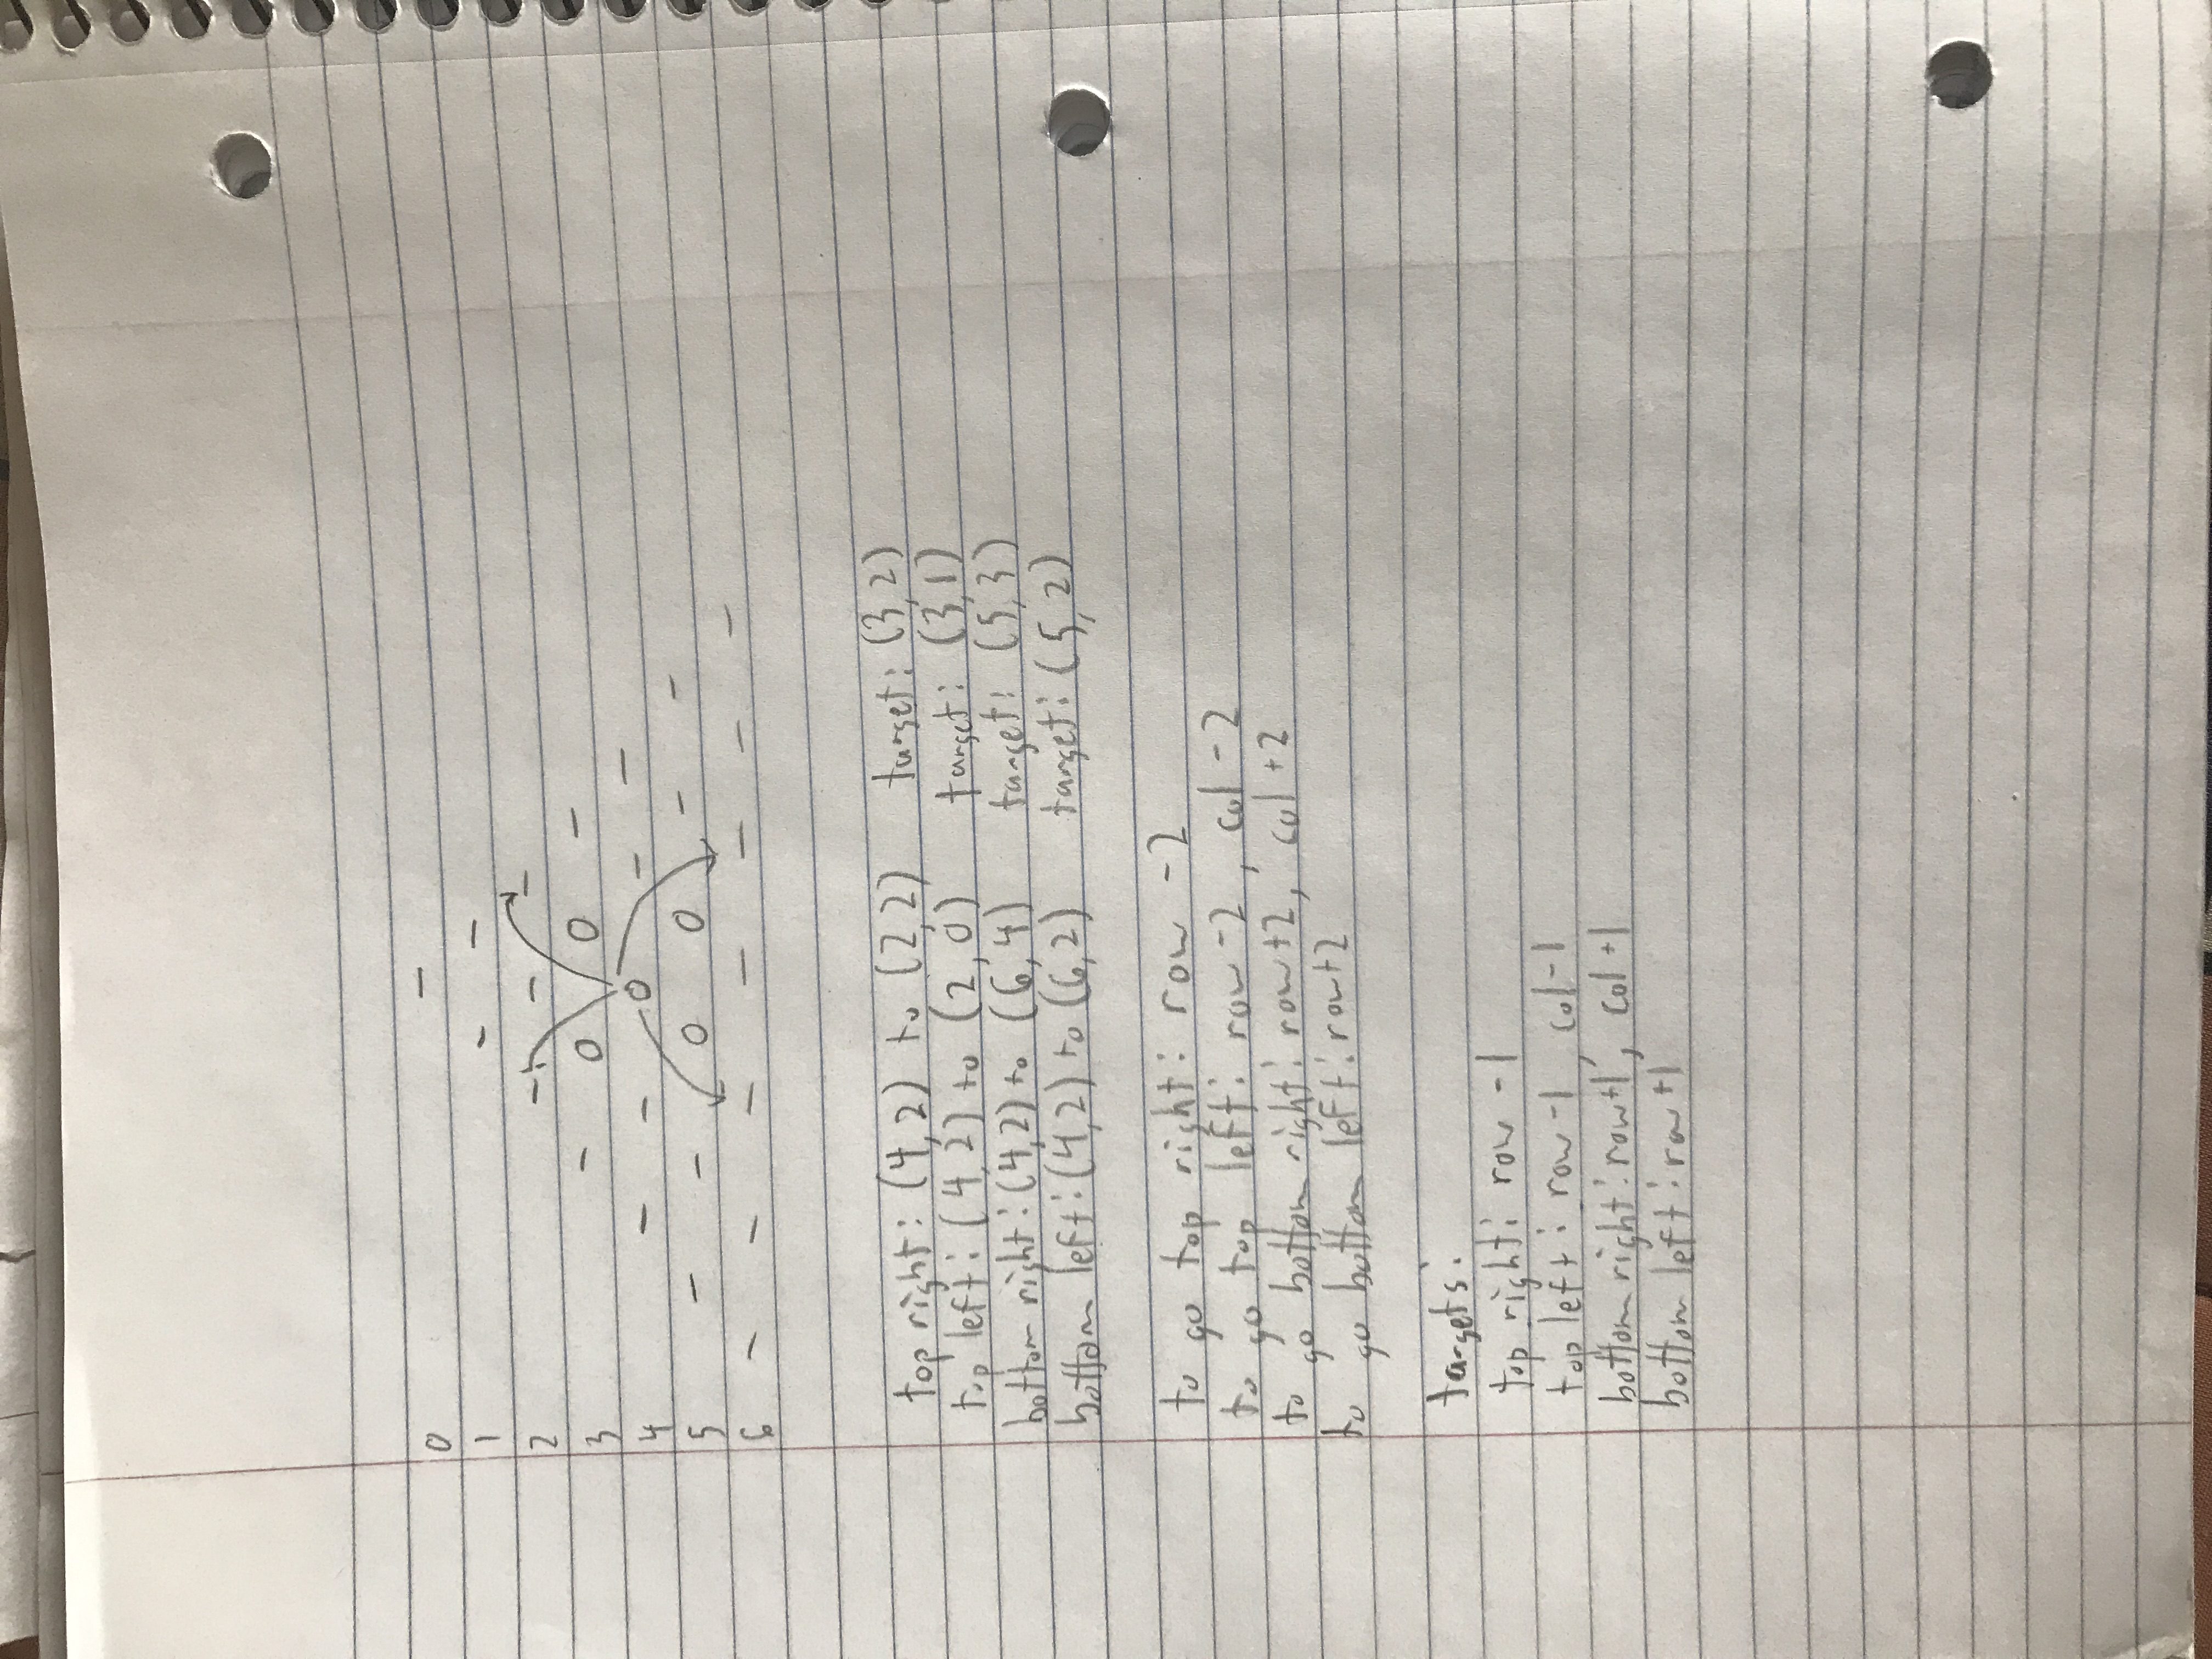 0 -
1 - -
2 - - -
3 - 0 0 -
4 - - 0 - -
5 - - 0 0 - -
6 - - - - - - -
top right: (4,2) to (2,2) target: (3,2)
top left: (4,2) to (2,0) target: (3,1)
bottom right: (4,2) to (6,4) target: (5,3)
bottom left: (4,2) to (6,2) target: (5,2)
to go top right: row -2
to go top left: row -2, col -2
to go bottom right: row+2, col +2
to go bottom left: row+2
targets:
top right: row -1
top left: row -1, col -1
bottom right: row+1, col +1
bottom left: row +1